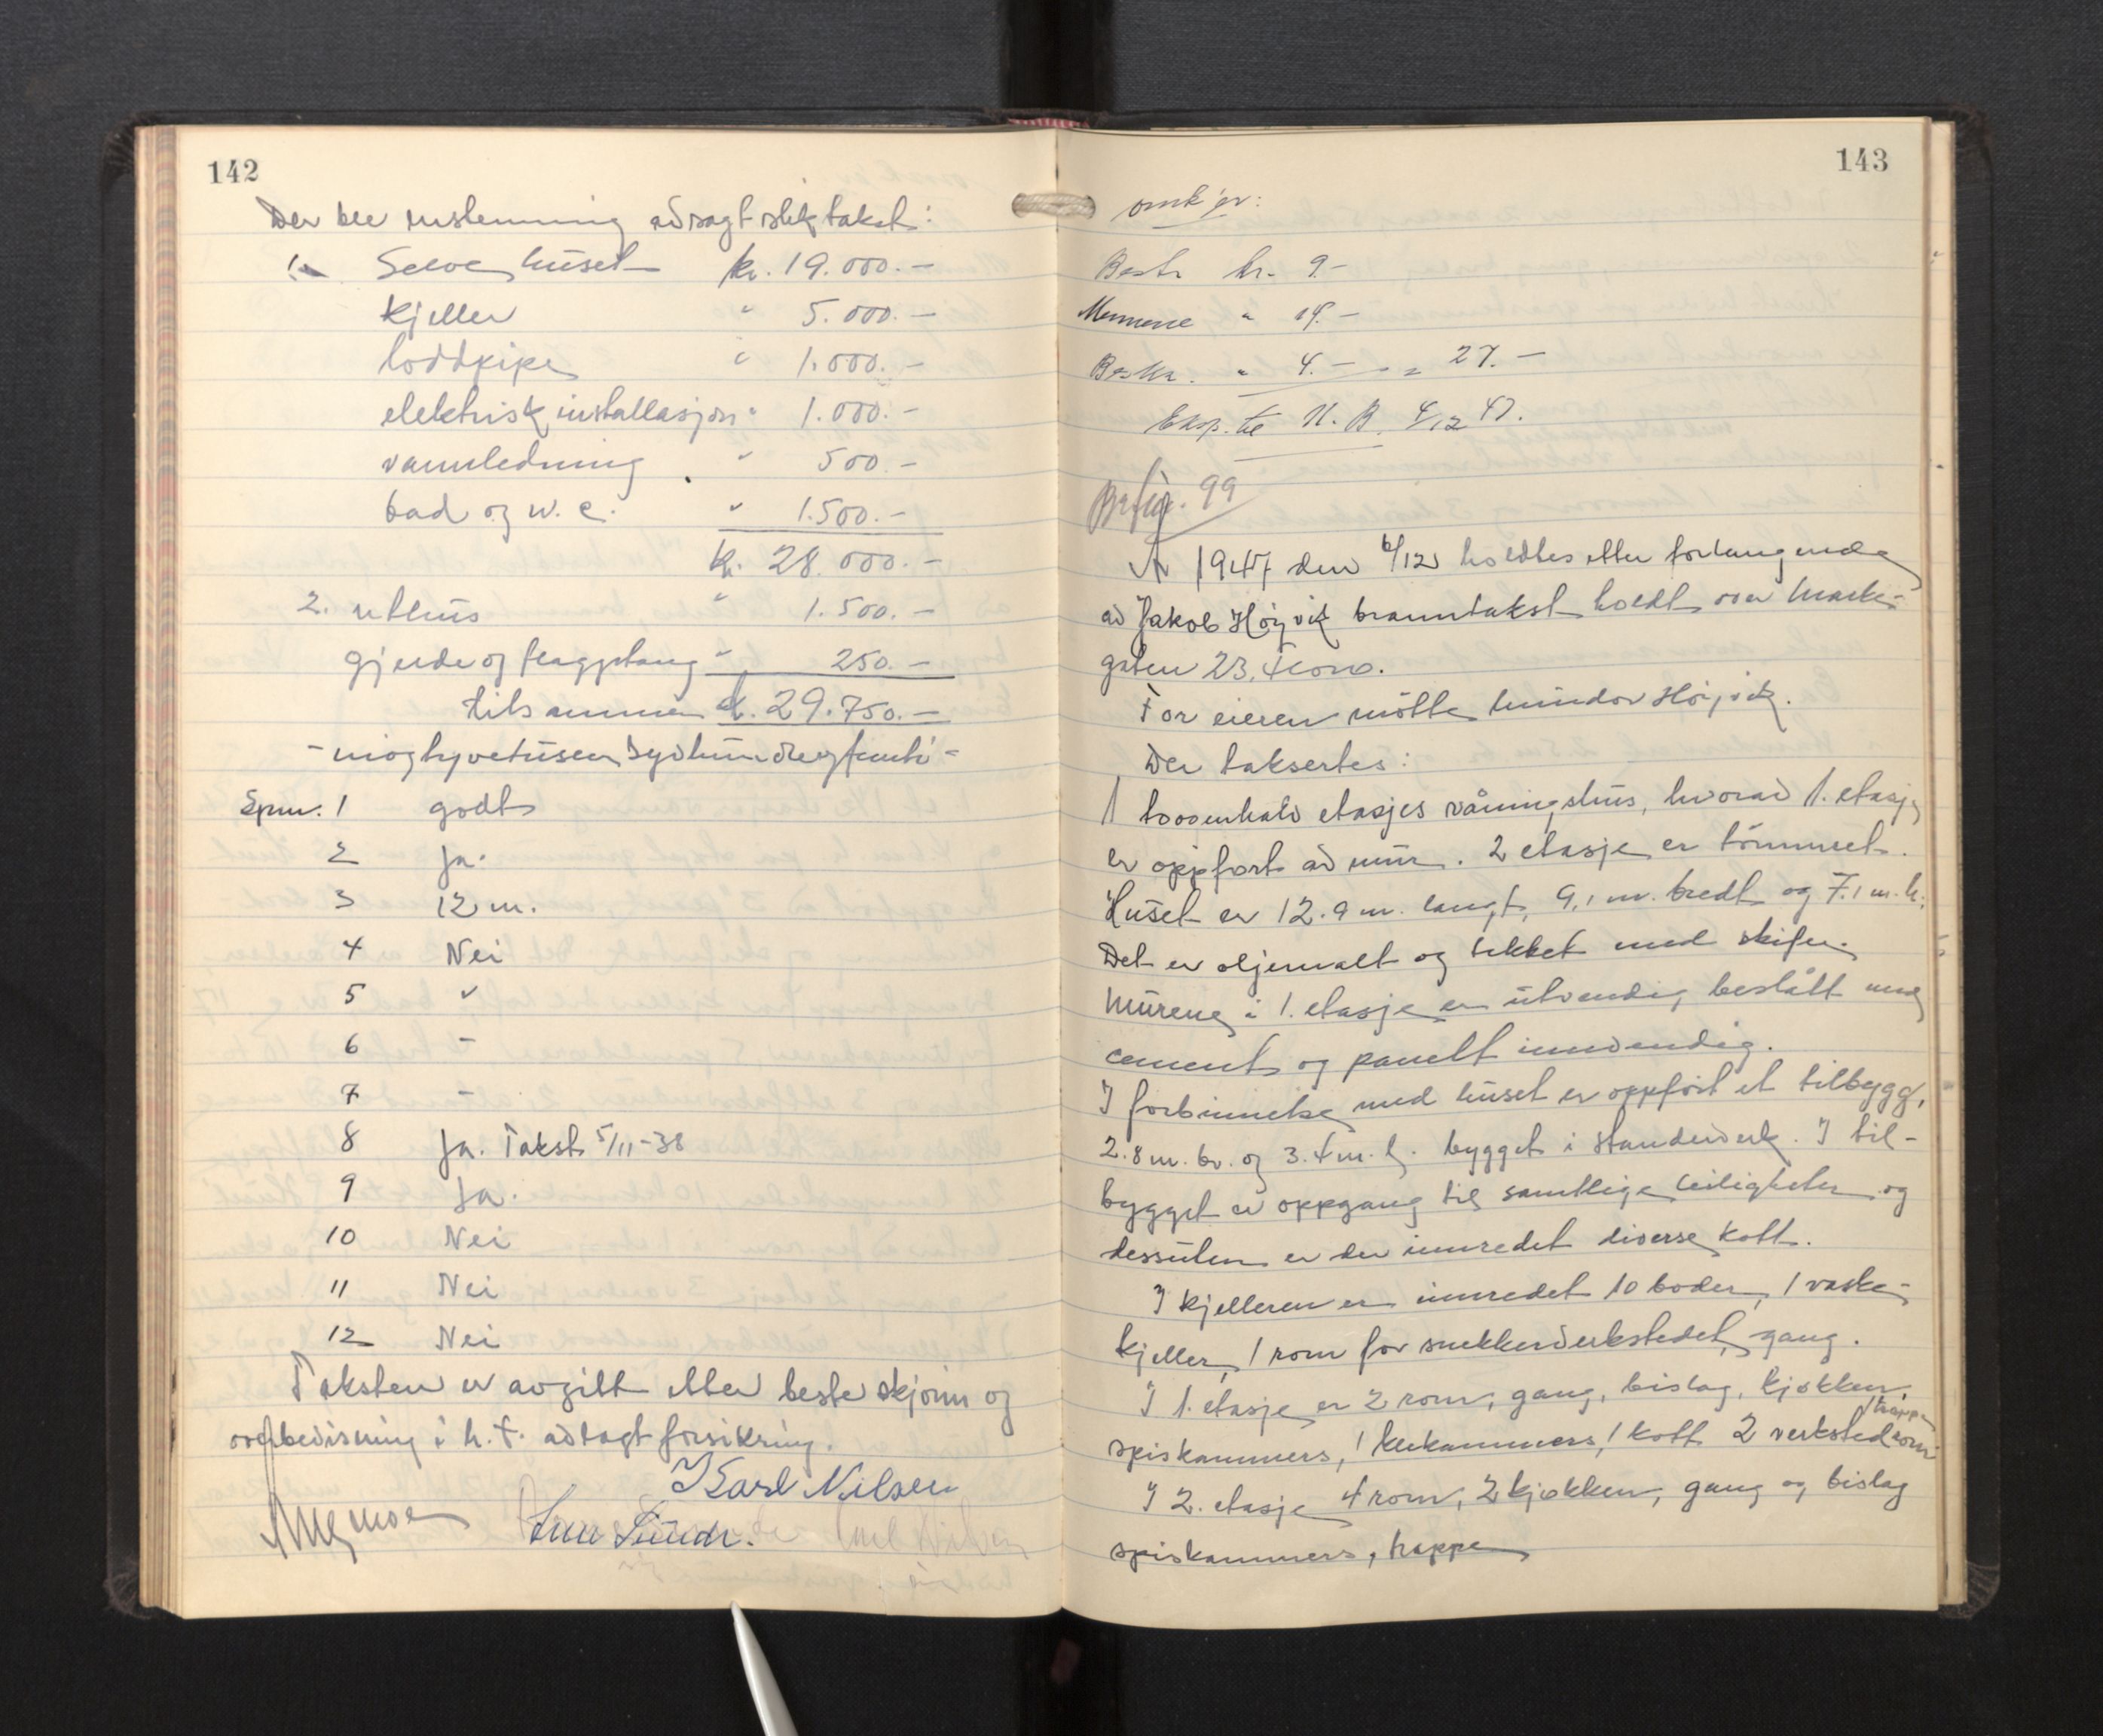 142
Der ble enstemmig avsagt slik takst:
1. Selve huset kr. 19.000.-
Kjeller " 5.000.-
loddpipe " 1.000.-
elektrisk installasjon " 1.000.-
vannledning " 500.-
bad og w.c. " 1.500.-
kr. 28.000.-
2. uthus " 1.500.-
gjerde og flaggstang " 250.-
tilsammen kr. 29.750.-
- niogtyvetusensyvhundreogfemti -
Spm. 1 godt
2 Ja.
3 12 m.
4 Nei
5 "
6 -
7 -
8 Ja. Takst 5/11-38
9 Ja.
10 Nei
11 Nei
12 Nei
Taksten er avgitt etter beste skjønn og
overbevisning i h.t. avlagt forsikring.
Karl Nilsen
143
omk. er:
Best. kr. 9.-
Mennene " 14.-
Beskr. " 4.- = 27.-
Eksp. til N.B. 4/12 47.
Br. 99
År 1947 den 6/12 holdtes etter forlangende
av Jakob Høyvik branntakst holdt over Marke-
gaten 23, Florø.
For eieren møtte Høyvik.
Der taksertes:
1 tooenhalv etasjes våningshus, hvorav 1. etasje
er oppført av mur. 2 etasje er tømmret.
Huset er 12.9 m. langt, 9,1 m. bredt og 7.1 m. h.
Det er oljemalt og tekket med skifer.
Murene i 1. etasje er utvendig beslått med
cement og panelt innvendig.
I forbinnelse med huset er oppført et tilbygg,
2.8 m. br. og 3.4 m. l. bygget i stenderverk. I til-
bygget er oppgang til samtlige leiligheter og
dessuten er der innredet diverse kott.
I kjelleren er innredet 10 boder, 1 vaske-
kjeller, 1 rom for snekkerverkstedet, gang.
I 1. etasje er 2 rom, gang, bislag, kjøkken,
spiskammers, 1 klekammers, 1 kott 2 verkstedrom, trappe
I 2. etasje 4 rom, 2 kjøkken, gang og bislag
spiskammers, trappe